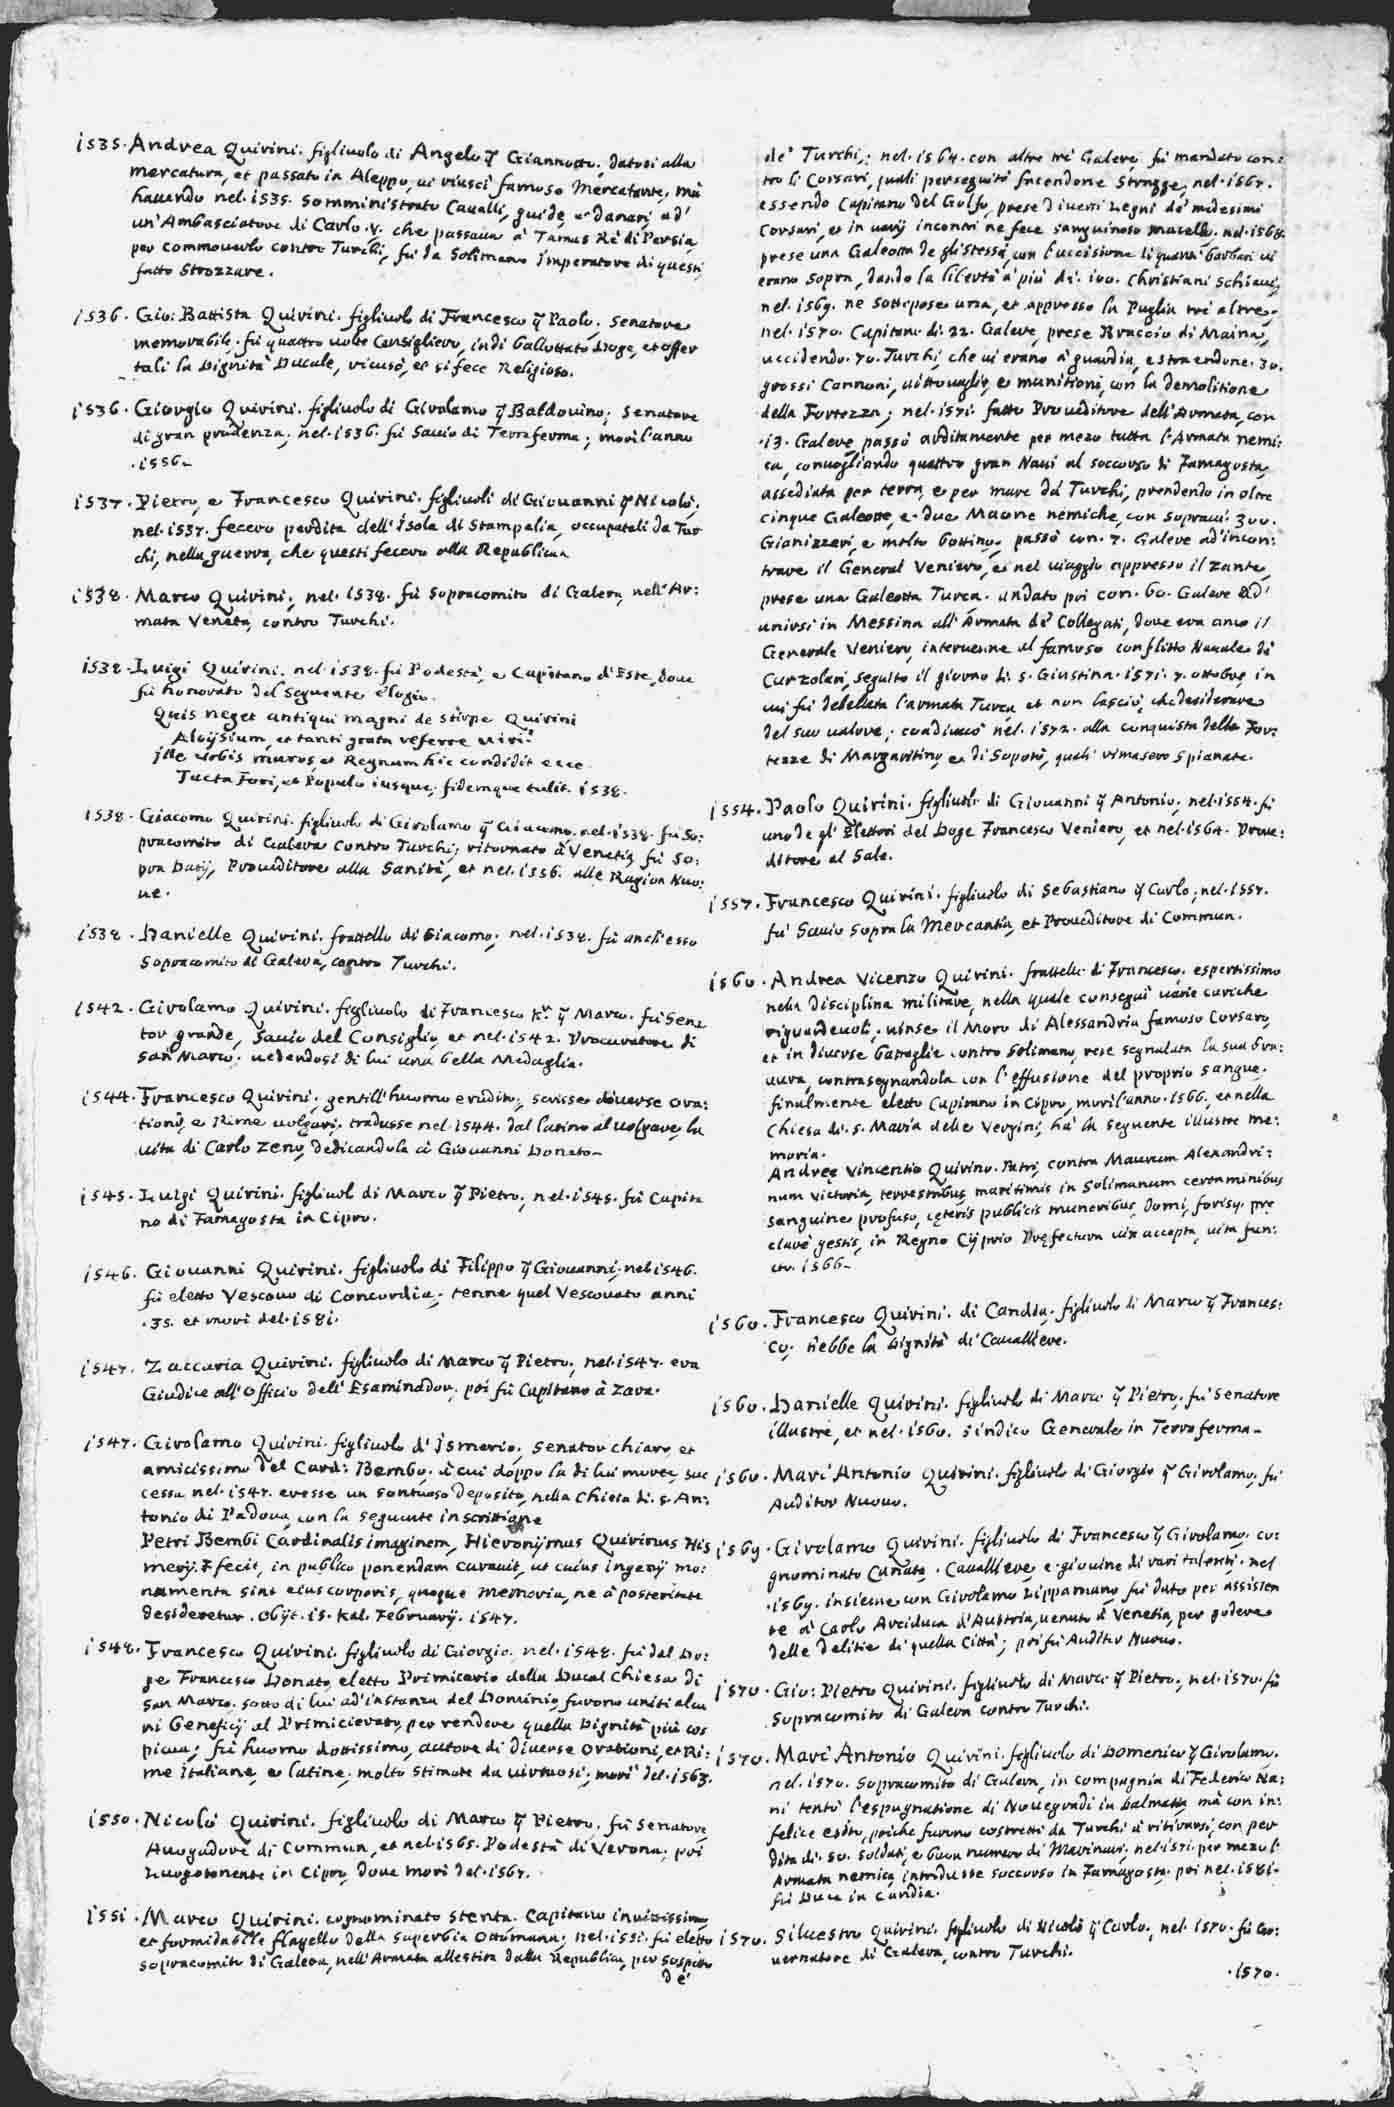 1535. Andrea Quirini. figliuolo di Angelo q̃ Giannotto, datosi alla
mercatura, et passato in Aleppo, ui riuscì famoso Mercatante, mà
hauendo nel. 1535. somministrato Caualli, guide, e danari ad'
un'Ambasciatore di Carlo .V. che passaua à Tamas Rè di Persia,
per commouerlo contro Turchi, fù da Solimano Imperatore di questi,
fatto Strozzare.
1536. Gio: Battista Quirini. figliuolo di Francesco q̃ Paolo, Senatore
memorabile. fù quattro uolte Consigliero, indi ballottato Doge, et offer
tali la Dignità Ducale, ricusò, et si fece Religioso.
1536. Giorgio Quirini. figliuolo di Girolamo q̃ Baldouino; Senatore
di gran prudenza, nel. 1536. fù Sauio di Terraferma; morì l'anno
.1556.
1537. Pietro, e Francesco Quirini. figliuoli di Giouanni q̃ Nicolò,
nel. 1537. fecero perdita dell'Isola di Stampalia, occupatali da Tur
chi, nella guerra, che questi fecero alla Republica.
1538. Marco Quirini, nel. 1538. fù Sopracomito di Galera, nell'Ar:
mata Veneta, contro Turchi.
1538. Luigi Quirini. nel. 1538. fù Podestà, e Capitano d'Este, doue
fù honorato del seguente elogio.
Quis neget antiqui magni de stirpe Quirini
Aloÿsium, et tanti grata referre uiri?
Ille urbis muros, et Regnum hic condidit ecce
Tecta Fori, et Populo iusque, fidemque tulit. 1538.
1538. Giacomo Quirini. figliuolo di Girolamo q̃ Giacomo, nel. 1538. fù So:
pracomito di Galera contro Turchi; ritornato à Venetia, fù So:
pra Datij, Proueditore alla Sanità, et nel. 1556. alle Ragion Nuo:
ue.
1538. Danielle Quirini. frattello di Giacomo, nel. 1538. fù anch'esso
Sopracomito di Galera, contro Turchi.
1542. Girolamo Quirini. figliuolo di Francesco K.r q̃ Marco. fù Sena
tor grande, Sauio del Consiglio, et nel. 1542. Procuratore di
San Marco; uedendosi di lui una bella Medaglia.
1544. Francesco Quirini, gentill'huomo erudito, scrisse diuerse ora:
tioni, e Rime uolgari, tradusse nel. 1544. dal latino al uolgare, la
uita di Carlo Zeno, dedicandola à Giouanni Donato.
1545. Luigi Quirini. figliuol di Marco q̃ Pietro, nel. 1545. fù Capita
no di Famagosta in Cipro.
1546. Giouanni Quirini. figliuolo di Filippo q̃ Giouanni, nel 1546.
fù eletto Vescouo di Concordia; tenne quel Vescouato anni
.35. et morì del. 1581.
1547. Zaccaria Quirini. figliuolo di Marco q̃ Pietro, nel. 1547. era
Giudice all'Officio dell'Esaminador, poi fù Capitano à Zara.
1547. Girolamo Quirini. figliuolo d'Ismerio, Senator chiaro, et
amicissimo del Card: Bembo, à cui doppo la di lui morte, suc
cessa nel. 1547. eresse un sontuoso deposito, nella Chiesa di. S. An:
tonio di Padoua, con la seguente inscrittione
Petri Bembi Cardinalis imaginem, Hieronÿmus Quirinus His
merij. F. fecit, in publico ponendam curauit, ut cuius ingenij mo:
numenta sint eius corporis, quoque memoria, ne à posteritate
desideretur. Obijt. 15. Kal. Februarij. 1547.
1548. Francesco Quirini figliuolo di Giorgio. nel. 1548. fù dal Do:
ge Francesco Donato, eletto Primicerio della Ducal Chiesa di
San Marco. sotto di lui ad'instanza del Dominio, furono uniti alcu
ni Beneficij al Primicierato, per rendere quella Dignità più cos
picua; fù huomo dottissimo, autore di diuerse orationi, et Ri:
me italiane, e latine, molto stimate da uirtuosi; morì del. 1563.
1550. Nicolò Quirini. figliuolo di Marco q̃ Pietro, fù Senatore,
Auogadore di Commun, et nel. 1565. Podestà di Verona; poi
Luogotenente in Cipro, doue morì del. 1567.
1551. Marco Quirini. cognominato Stenta. Capitano inuitissimo,
et formidabile flagello della superbia Ottomana; nel. 1551. fù eletto
sopracomito di Galera, nell'Armata allestita dalla Republica, per sospetto
de'
de' Turchi; nel. 1564. con altre trè Galere, fù mandato con:
tro li Corsari, quali perseguitò facendone Stragge, nel. 1567.
essendo Capitano del Golfo, prese diuersi Legni de' medesimi
Corsari, et in uarij incontri ne fece sanguinoso macello. nel. 1568.
prese una Galeotta de gli stessi, con l'uccisione di quanti barbari ui
erano sopra, dando la libertà à più di. 100. Christiani schiaui,
nel. 1569. ne sottopose una, et appresso la Puglia trè altre,
nel. 1570. Capitano di. 22. Galere, prese Braccio di Maina,
uccidendo. 70. Turchi, che ui erano à guardia, estraendone. 30.
grossi Cannoni, uittouaglie, e munitioni, con la demolitione
della Fortezza; nel. 1571. fatto Proueditore dell'Armata, con
.13. Galere, passò arditamente per mezo tutta l'Armata nemi:
ca, conuogliando quattro gran Naui al soccorso di Famagosta,
assediata per terra, e per mare da Turchi, prendendo in oltre
cinque Galeotte, e due Maone nemiche, con sopraui. 300.
Gianizzeri, e molto bottino; passò con. 7. Galere ad'incon:
trare il General Veniero, e nel uiaggio appresso il Zante,
prese una Galeotta Turca. andato poi con. 60. Galere ad'
unirsi in Messina all'Armata de' Collegati, doue era anco il
Generale Veniero, interuenne al famoso conflitto Nauale di
Curzolari, seguito il giorno di. S. Giustina. 1571. 7. ottobre, in
cui fù debellata l'armata Turca, et non lasciò, che desiderare
del suo ualore; coadiuuò nel. 1572. alla conquista delle For:
tezze di Margaritino, e di Sopotò, quali rimasero spianate.
1554. Paolo Quirini. figliuolo di Giouanni q̃ Antonio; nel. 1554. fù
uno de gl'Elettori del Doge Francesco Veniero, et nel. 1564. Proue:
ditore al Sale.
1557. Francesco Quirini. figliuolo di Sebastiano q̃ Carlo; nel. 1557.
fù Sauio sopra la Mercantia, et Proueditore di Commun.
1560. Andrea Vicenzo Quirini. frattello di Francesco. espertissimo
nella disciplina militare, nella quale conseguì uarie cariche
riguardeuoli, uinse il Moro di Alessandria famoso Corsaro,
et in diuerse battaglie contro Solimano, rese segnalata la sua bra:
uura, contrasegnandola con l'effusione del proprio sangue.
finalmente eletto Capitano in Cipro, morì l'anno. 1566. et nella
Chiesa di. S. Maria delle Vergini, hà la seguente illustre me:
moria.
Andreę Vincentio Quirino. Patri, contra Maurum Alexandri:
num Victoria, terrestribus, maritimis in Solimanum certaminibus
sanguine profuso, cęteris publicis muneribus, Domi, forisq. prę
clarè gestis, in Regno Cÿprio Pręfectura uix accepta, uita fun:
cto. 1566.
1560. Francesco Quirini. di Candia. figliuolo di Marco q̃ Frances:
co, hebbe la Dignità di Caualliere.
1560. Danielle Quirini. figliuolo di Marco q̃ Pietro, fù Senatore
illustre, et nel. 1560. sindico Generale in Terraferma.
1560. Marc'Antonio Quirini. figliuolo di Giorgio q̃ Girolamo, fù
Auditor Nuouo.
1569. Girolamo Quirini. figliuolo di Francesco q̃ Girolamo, co:
gnominato . Caualliere, e giouine di rari talenti. nel
.1569. insieme con Girolamo Lippamano, fù dato per assisten
te à Carlo Arciduca d'Austria, uenuto à Venetia, per godere
delle delitie di quella Città; poi fù Auditor Nuouo.
1570. Gio: Pietro Quirini. figliuolo di Marco q̃ Pietro, nel. 1570. fù
Sopracomito di Galera contro Turchi.
1570. Marc'Antonio Quirini. figliuolo di Domenico q̃ Girolamo.
nel. 1570. Sopracomito di Galera, in compagnia di Federico Na:
ni tentò l'espugnatione di Nouegradi in Dalmatia, mà con in:
felice esito, poiche furono costretti da Turchi à ritirarsi, con per
dita di. 50. soldati, e buon numero di Marinari. nel. 1571. per mezo l'
Armata nemica, introdusse soccorso in Famagosta. poi nel. 1581.
fù Duca in Candia.
1570. Siluestro Quirini. figliuolo di Nicolò q̃ Carlo, nel. 1570. fù Go:
uernatore di Galera, contro Turchi.
.1570.